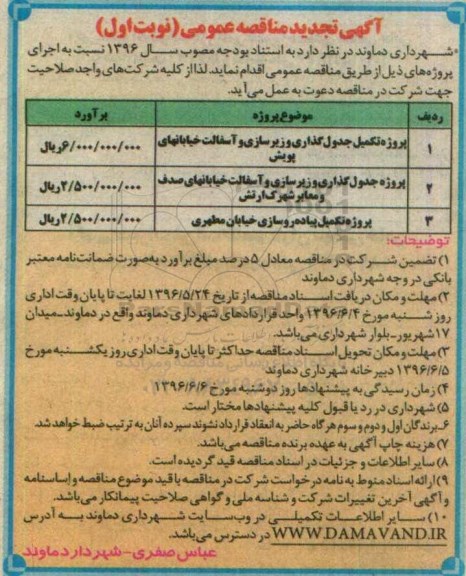 آگهی تجدید مناقصه عمومی (نوبت اول)
شهرداری دماوند در نظر دارد به استناد بودجه مصوب سال ۱۳۹۶ نسبت به اجرای
پروژه‌های ذیل از طریق مناقصه عمومی اقدام نماید. لذا از کلیه شرکت‌های واجد صلاحیت
جهت شرکت در مناقصه دعوت به عمل می‌آید.
ردیف موضوع پروژه برآورد
۱ پروژه تکمیل جدول گذاری و زیرسازی و آسفالت خیابانهای پویش ۶/۰۰۰/۰۰۰/۰۰۰ ریال
۲ پروژه جدول گذاری و زیرسازی و آسفالت خیابانهای صدف و معابر شهرک ارتش ۲/۵۰۰/۰۰۰/۰۰۰ ریال
۳ پروژه تکمیل پیاده‌روسازی خیابان مطهری ۲/۵۰۰/۰۰۰/۰۰۰ ریال
توضیحات:
۱) تضمین شرکت در مناقصه معادل ۵ درصد مبلغ برآورد به‌صورت ضمانت‌نامه معتبر
بانکی در وجه شهرداری دماوند
۲) مهلت و مکان دریافت اسناد مناقصه از تاریخ ۱۳۹۶/۵/۲۴ لغایت تا پایان وقت اداری
روز شنبه مورخ ۱۳۹۶/۶/۴ واحد قراردادهای شهرداری دماوند واقع در دماوند-میدان
۱۷شهریور-بلوار شهرداری می‌باشد.
۳) مهلت و مکان تحویل اسناد مناقصه حداکثر تا پایان وقت اداری روز یکشنبه مورخ
۱۳۹۶/۶/۵ دبیرخانه شهرداری دماوند
۴) زمان رسیدگی به پیشنهادها روز دوشنبه مورخ ۱۳۹۶/۶/۶
۵) شهرداری در رد یا قبول کلیه پیشنهادها مختار است.
۶_برندگان اول و دوم و سوم هرگاه حاضر به انعقاد قرارداد نشوند سپرده آنان به ترتیب ضبط خواهد شد.
۷) هزینه چاپ آگهی به عهده برنده مناقصه می‌باشد.
۸) سایر اطلاعات و جزئیات در اسناد مناقصه قید گردیده است.
۹) ارائه اسناد منوط به نامه درخواست شرکت در مناقصه با قید موضوع مناقصه و اساسنامه
و آگهی آخرین تغییرات شرکت و شناسه ملی و گواهی صلاحیت پیمانکار می‌باشد.
۱۰) سایر اطلاعات تکمیلی در وب‌سایت شهرداری دماوند به آدرس
WWW.DAMAVAND.IR در دسترس می‌باشد.
عباس صفری-شهردار دماوند